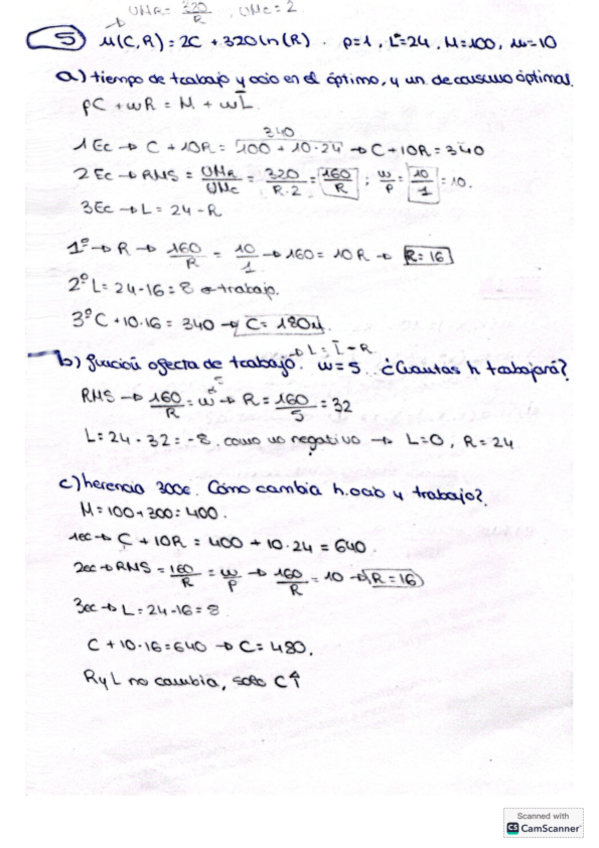 UMR = 320/R , UMC = 2.
5 u(C,R) = 2C + 320 ln(R) . p=1, L̄=24, M=100, w=10
a) tiempo de trabajo y ocio en el óptimo, y un. de consumo óptimas.
pC + wR = M + wL̄.
340
1Ec → C + 10R = 100 + 10·24 → C + 10R = 340
2Ec → RMS = UMR/UMC = 320/R·2 = 160/R ; w/p = 10/1 = 10.
3Ec → L = 24 - R
1º → R → 160/R = 10/1 → 160 = 10R → R = 16
2º L = 24 - 16 = 8 → trabajo.
3º C + 10·16 = 340 → C = 180u.
→ L = L̄ - R
b) función oferta de trabajo. w=5. ¿Cuantas h trabajará?
RMS → 160/R = w → R = 160/5 = 32
L = 24 - 32 = -8. como no negativo → L=0, R=24
c) herencia 300€. Cómo cambia h. ocio y trabajo?
M = 100 + 300 = 400.
1ec → C + 10R = 400 + 10·24 = 640.
2ec → RMS = 160/R = w/p → 160/R = 10 → R = 16
3ec → L = 24 - 16 = 8
C + 10·16 = 640 → C = 480.
R y L no cambia, solo C↑
Scanned with
CS CamScanner